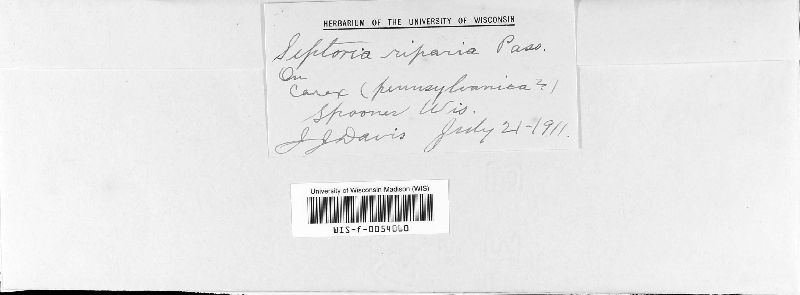 HERBARIUM OF THE UNIVERSITY OF WISCONSIN
Septoria riparia Pass.
On
Carex (pennsylvanica?)
Spooner Wis.
J J Davis July 21-1911.
University of Wisconsin Madison (WIS)
WIS-f-0054060